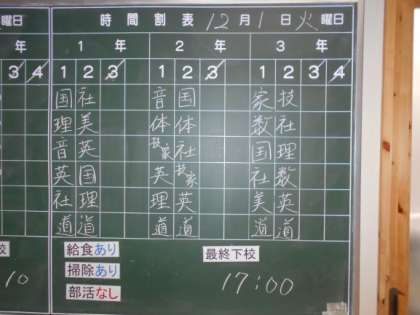 曜日 時間割表 12月1日火曜日
年 1年 2年 3年
3 4 1 2 3 1 2 3 1 2 3 4
国 社 音 国 家 技
理 美 体 体 数 社
音 英 技家 社 国 理
英 国 英 技家 社 数
社 理 理 英 美 英
道 道 道 道 道 道
校 給食あり 最終下校
掃除あり
10 部活なし 17:00